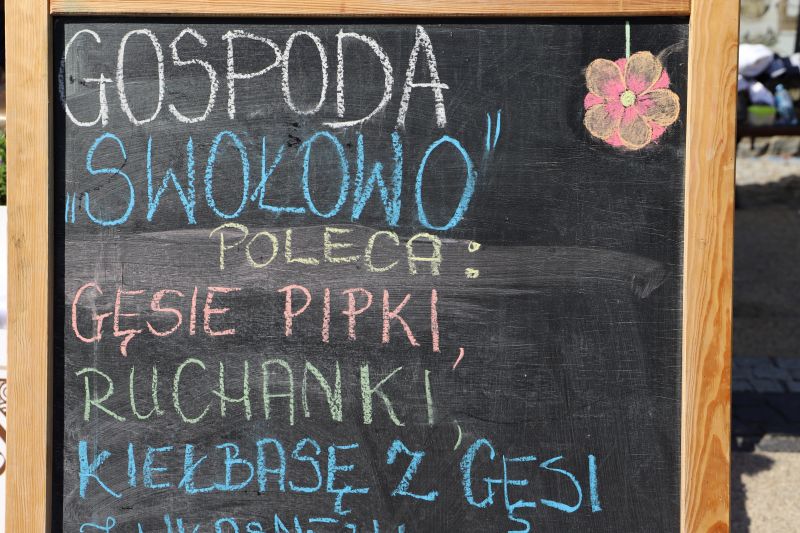 GOSPODA
„SWOŁOWO"
POLECA:
GĘSIE PIPKI,
RUCHANKI,
KIEŁBASĘ Z GĘSI